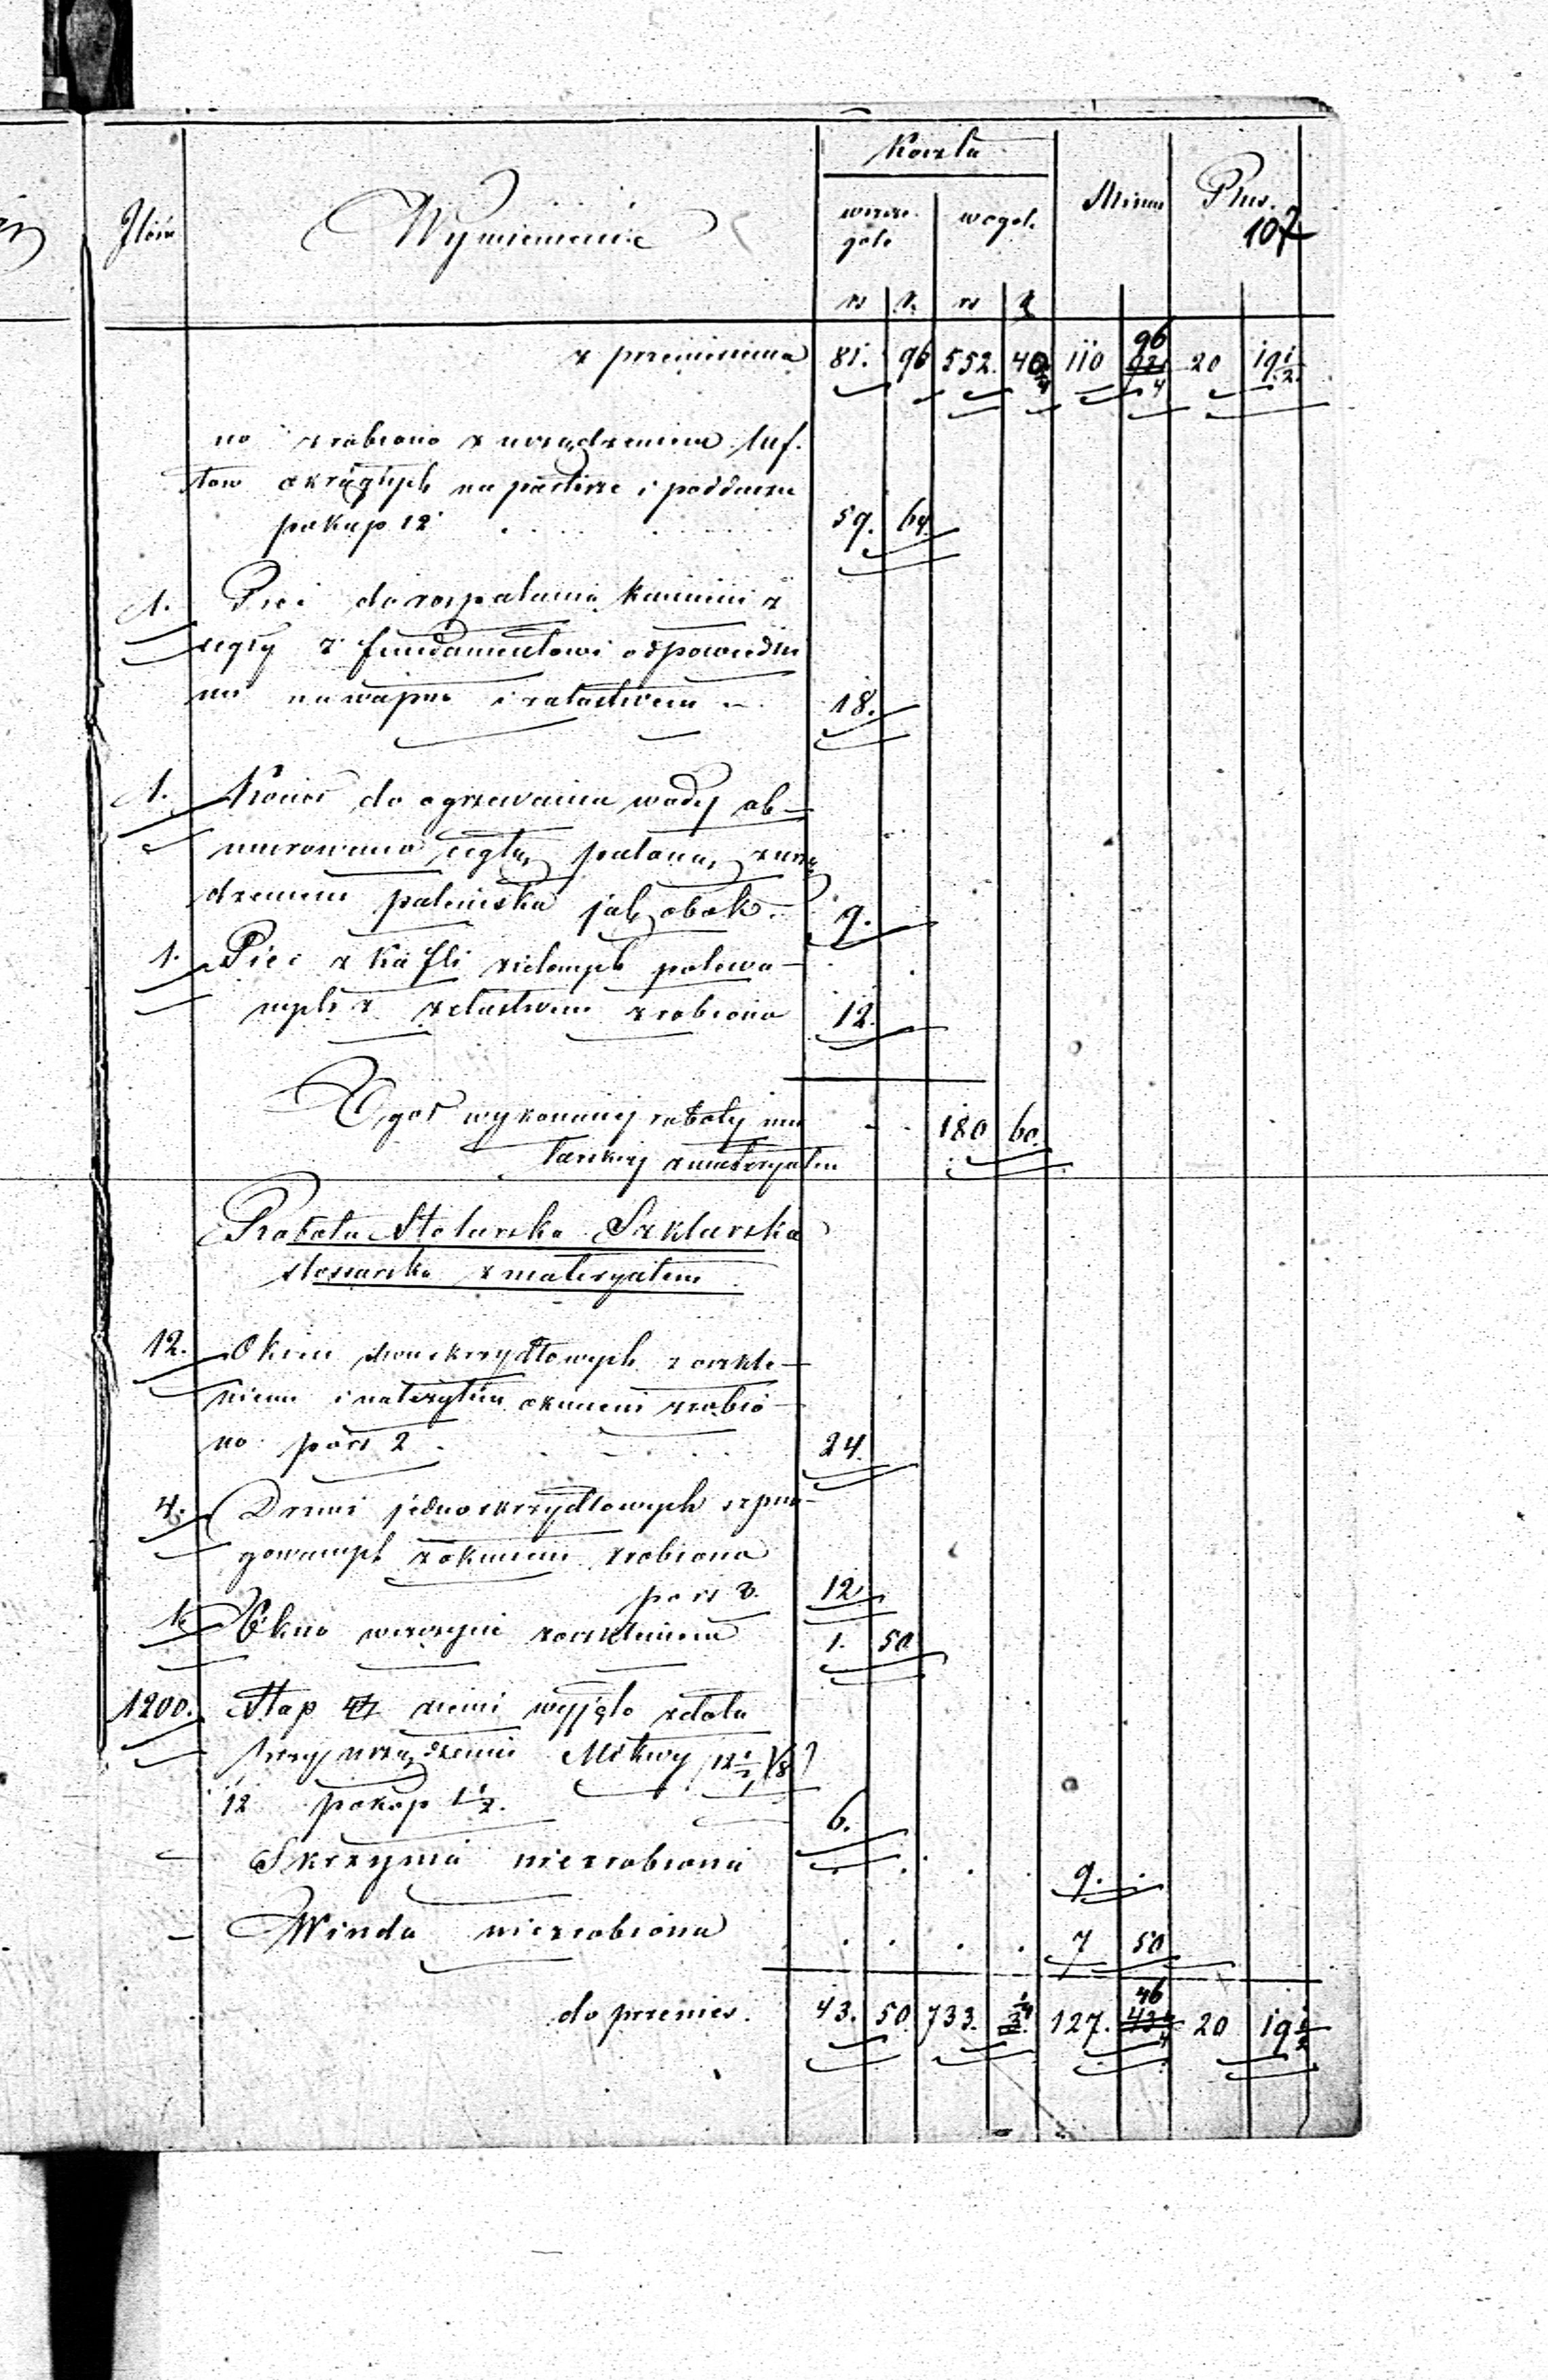 Koszta
Ilość Wymienienie wszcze- wogól. Minus Plus.
góle 107
rs k. rs k
z przeniesienia 81. 96 552. 40 110 96 20 19 1/2
no zrobiono z urządzeniem luf-
tów okrągłych na parterze i poddaszu
po kop 12 59. 64.
1. Piec do rospalania kamieni z
cegły z fundamentowi odpowiedni
na wapno i żelastwem 18.
1. Kocioł do ogrzewania wody ob-
murowano cegłą paloną, z urzą
dzeniem paleniska jak obok. 9.
1. Piec z kafli zielonych polewa-
nych z żelastwem zrobiono 12.
Ogół wykonanej roboty mu 180 60.
larskiej z materyałem
Robota Stolarska Szklarska
slosarska z materyałem
12. Okien dwuskrzydłowych z oszkle-
niem i należytem okuciem zrobio-
no po rs 2. 24.
4. Drzwi jednoskrzydłowych szpon-
gowanych z okuciem zrobiono
po rs 3. 12
1. Okno weneckie z oszkleniem 1. 50
1200. Stóp ziemi wyjęto z dołu
przy urządzeniu Mikwy
12 po kop 1/2. 6.
Skrzynia niezrobiona 9.
Winda niezrobiona 7 50
do przenies. 43. 50. 733. 127. 46 20 19 1/2